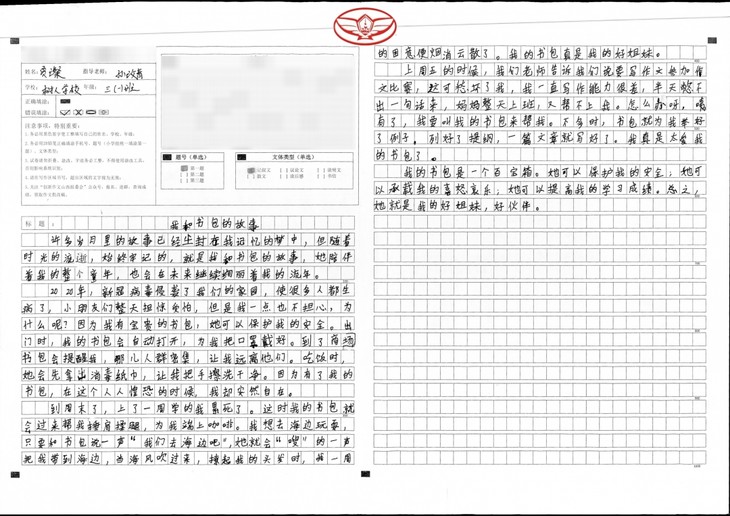 姓名：
指导老师：
学校：树人学校 年级：三(一)班
正确填涂：
错误填涂：
注意事项，特别重要：
题号（单选）
[ ] 第二题
[ ] 第三题
文体类型（单选）
标题：我和书包的故事
许多岁月里的故事已经尘封在我记忆的梦中，但随着
时光的流逝，始终牢记的，就是我和书包的故事，她陪伴
着我的整个童年，也会在未来继续绚丽着我的流年。
2020年，新冠病毒侵袭了我们的家园，使很多人都生
病了，小朋友们整天担惊受怕，但是我一点也不担心，为
什么呢？因为我有宝贵的书包，她可以保护我的安全。出
门时，我的书包会自动打开，为我把口罩戴好。到了商场
书包会提醒我，哪儿人群密集，让我远离他们。吃饭时，
她会先拿出消毒纸巾，让我把手擦洗干净。因为有了我的
书包，在这个人人惶恐的时候，我却安然自在。
到周末了，上了一周学的我累死了。这时我的书包就
会过来帮我捶肩揉腿，为我端上咖啡。我想去海边玩耍，
只要和书包说一声“我们去海边吧”，她就会“嗖”的一声
把我带到海边，当海风吹过来，撩起我的头发时，我一周
的困意便烟消云散了。我的书包真是我的好姐妹。
上周五的时候，我们老师告诉我们说要写作文参加作
文比赛，这可愁坏了我，我一直写作能力很差，半天憋不
出一句话来，妈妈整天上班，又帮不上我。怎么办呀，嘻
有了，我要叫我的书包来帮我。下午时，书包就为我举好
了例子，列好了提纲，一篇文章就写好了。我真是太爱我
的书包了。
我的书包是一个百宝箱。她可以保护我的安全；她可
以承载我的喜怒哀乐；她可以提高我的学习成绩。总之，
她就是我的好姐妹，好伙伴。